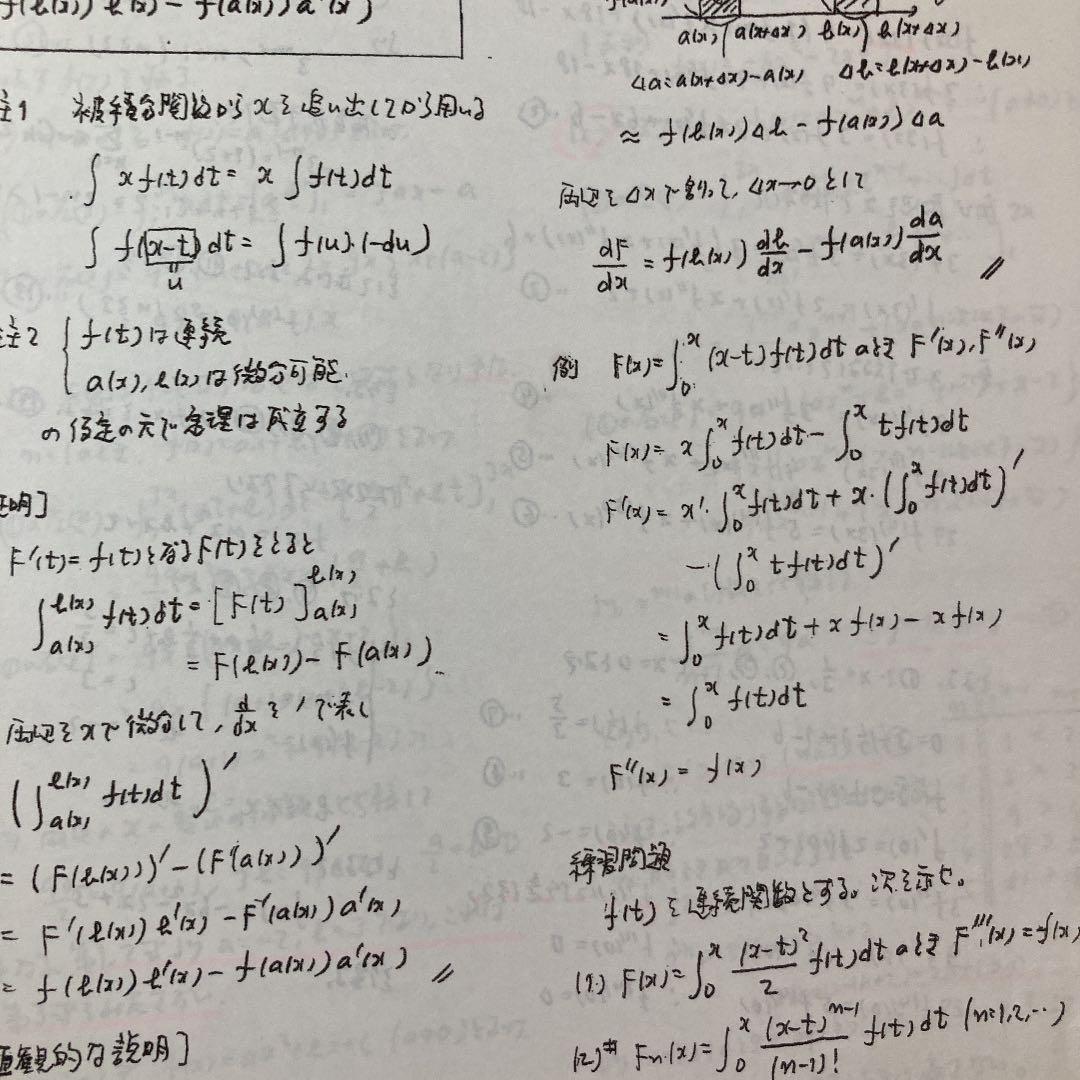 f(b(x)) b'(x) - f(a(x)) a'(x)
注1 被積分関数からxを追い出してから用いる
∫ x f(t) dt = x ∫ f(t) dt
∫ f(x-t) dt = ∫ f(u)・(-du)
u
注2 { f(t) は連続
a(x), b(x) は微分可能.
の仮定の元で定理は成立する
証明]
F'(t) = f(t) となる F(t) をとると
∫_{a(x)}^{b(x)} f(t) dt = [F(t)]_{a(x)}^{b(x)}
= F(b(x)) - F(a(x)).
両辺を x で微分して, d/dx を ' で表し
(∫_{a(x)}^{b(x)} f(t) dt)'
= (F(b(x)))' - (F(a(x)))'
= F'(b(x)) b'(x) - F'(a(x)) a'(x)
= f(b(x)) b'(x) - f(a(x)) a'(x) //
直観的な説明]
a(x) a(x+Δx) b(x) b(x+Δx)
Δa = a(x+Δx) - a(x) Δb = b(x+Δx) - b(x)
≈ f(b(x)) Δb - f(a(x)) Δa
両辺を Δx で割って, Δx→0 として
dF/dx = f(b(x)) db/dx - f(a(x)) da/dx //
例 F(x) = ∫_0^x (x-t) f(t) dt のとき F'(x), F''(x)
F(x) = x ∫_0^x f(t) dt - ∫_0^x t f(t) dt
F'(x) = x'・∫_0^x f(t) dt + x・(∫_0^x f(t) dt)'
- (∫_0^x t f(t) dt)'
= ∫_0^x f(t) dt + x f(x) - x f(x)
= ∫_0^x f(t) dt
F''(x) = f(x)
練習問題
f(t) を連続関数とする。次を示せ。
(1) F(x) = ∫_0^x (x-t)^2/2 f(t) dt のとき F'''(x) = f(x)
(2)# Fn(x) = ∫_0^x (x-t)^{n-1}/(n-1)! f(t) dt (n=1,2,…)